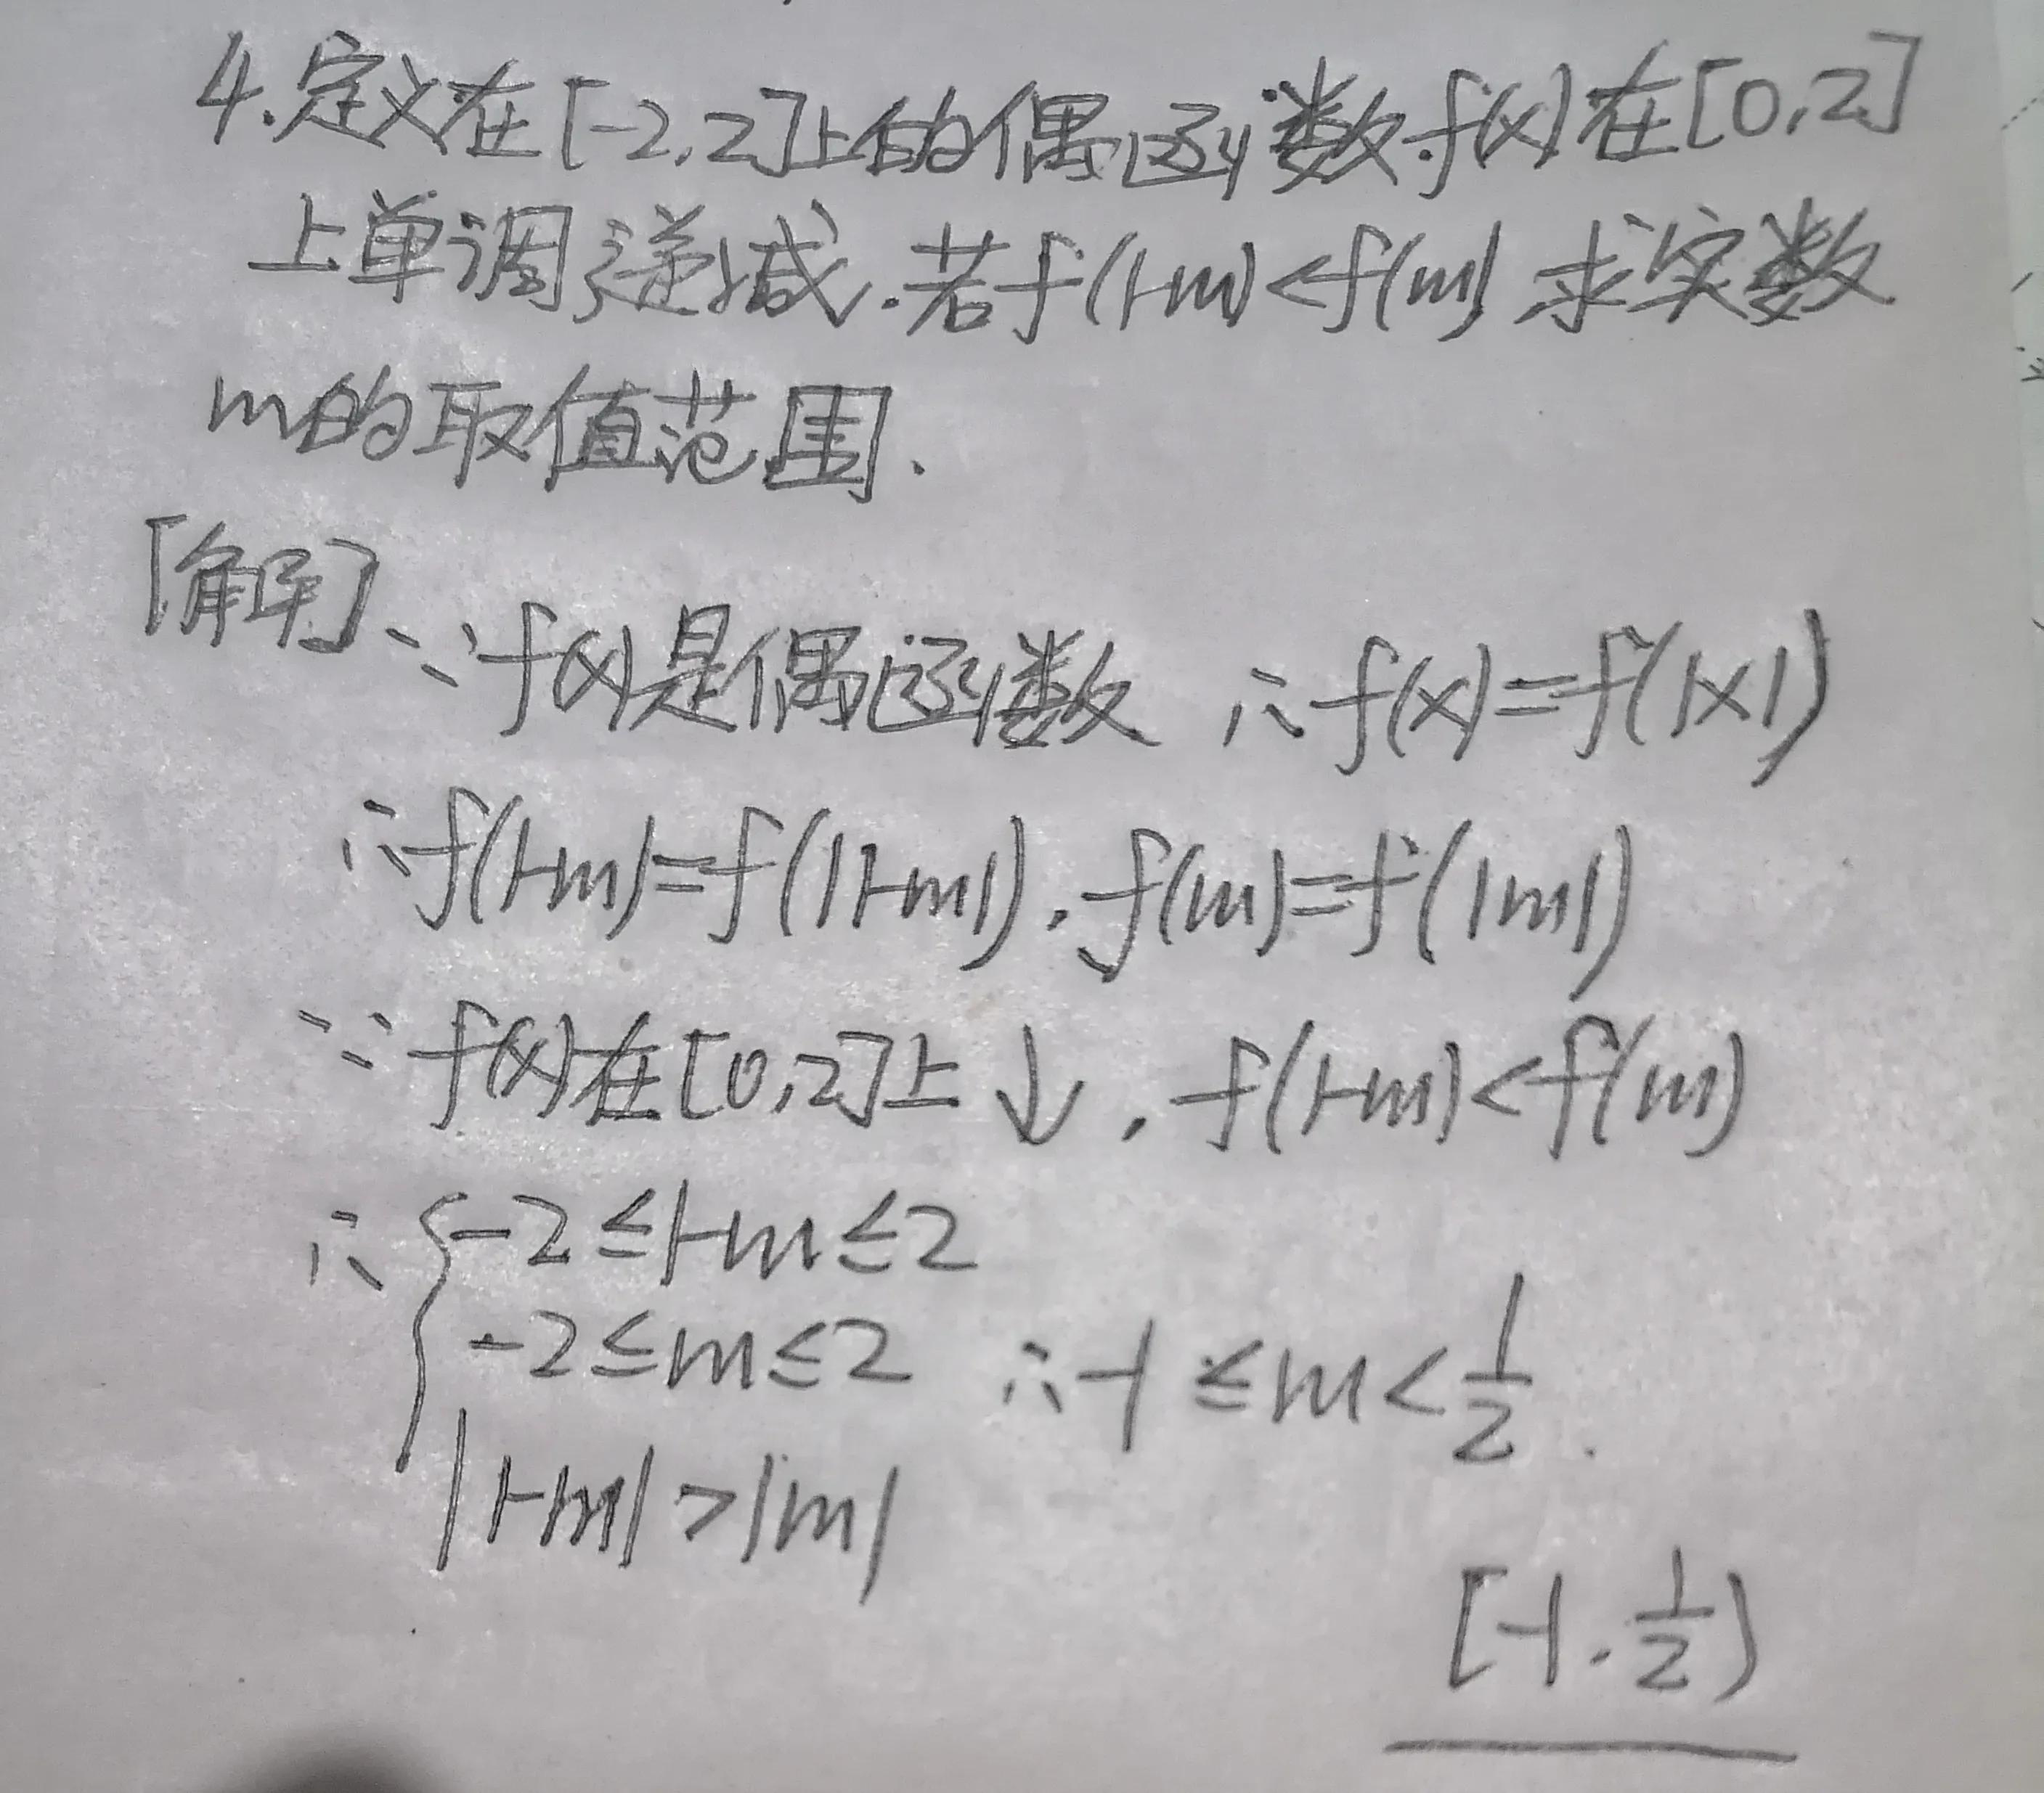 4.定义在[-2,2]上的偶函数f(x)在[0,2]
上单调递减.若f(1-m)<f(m),求实数
m的取值范围.
[解]∵f(x)是偶函数 ∴f(x)=f(|x|)
∴f(1-m)=f(|1-m|),f(m)=f(|m|)
∵f(x)在[0,2]上↓,f(1-m)<f(m)
∴{-2≤1-m≤2
-2≤m≤2 ∴-1≤m<1/2.
|1-m|>|m|
[-1,1/2)